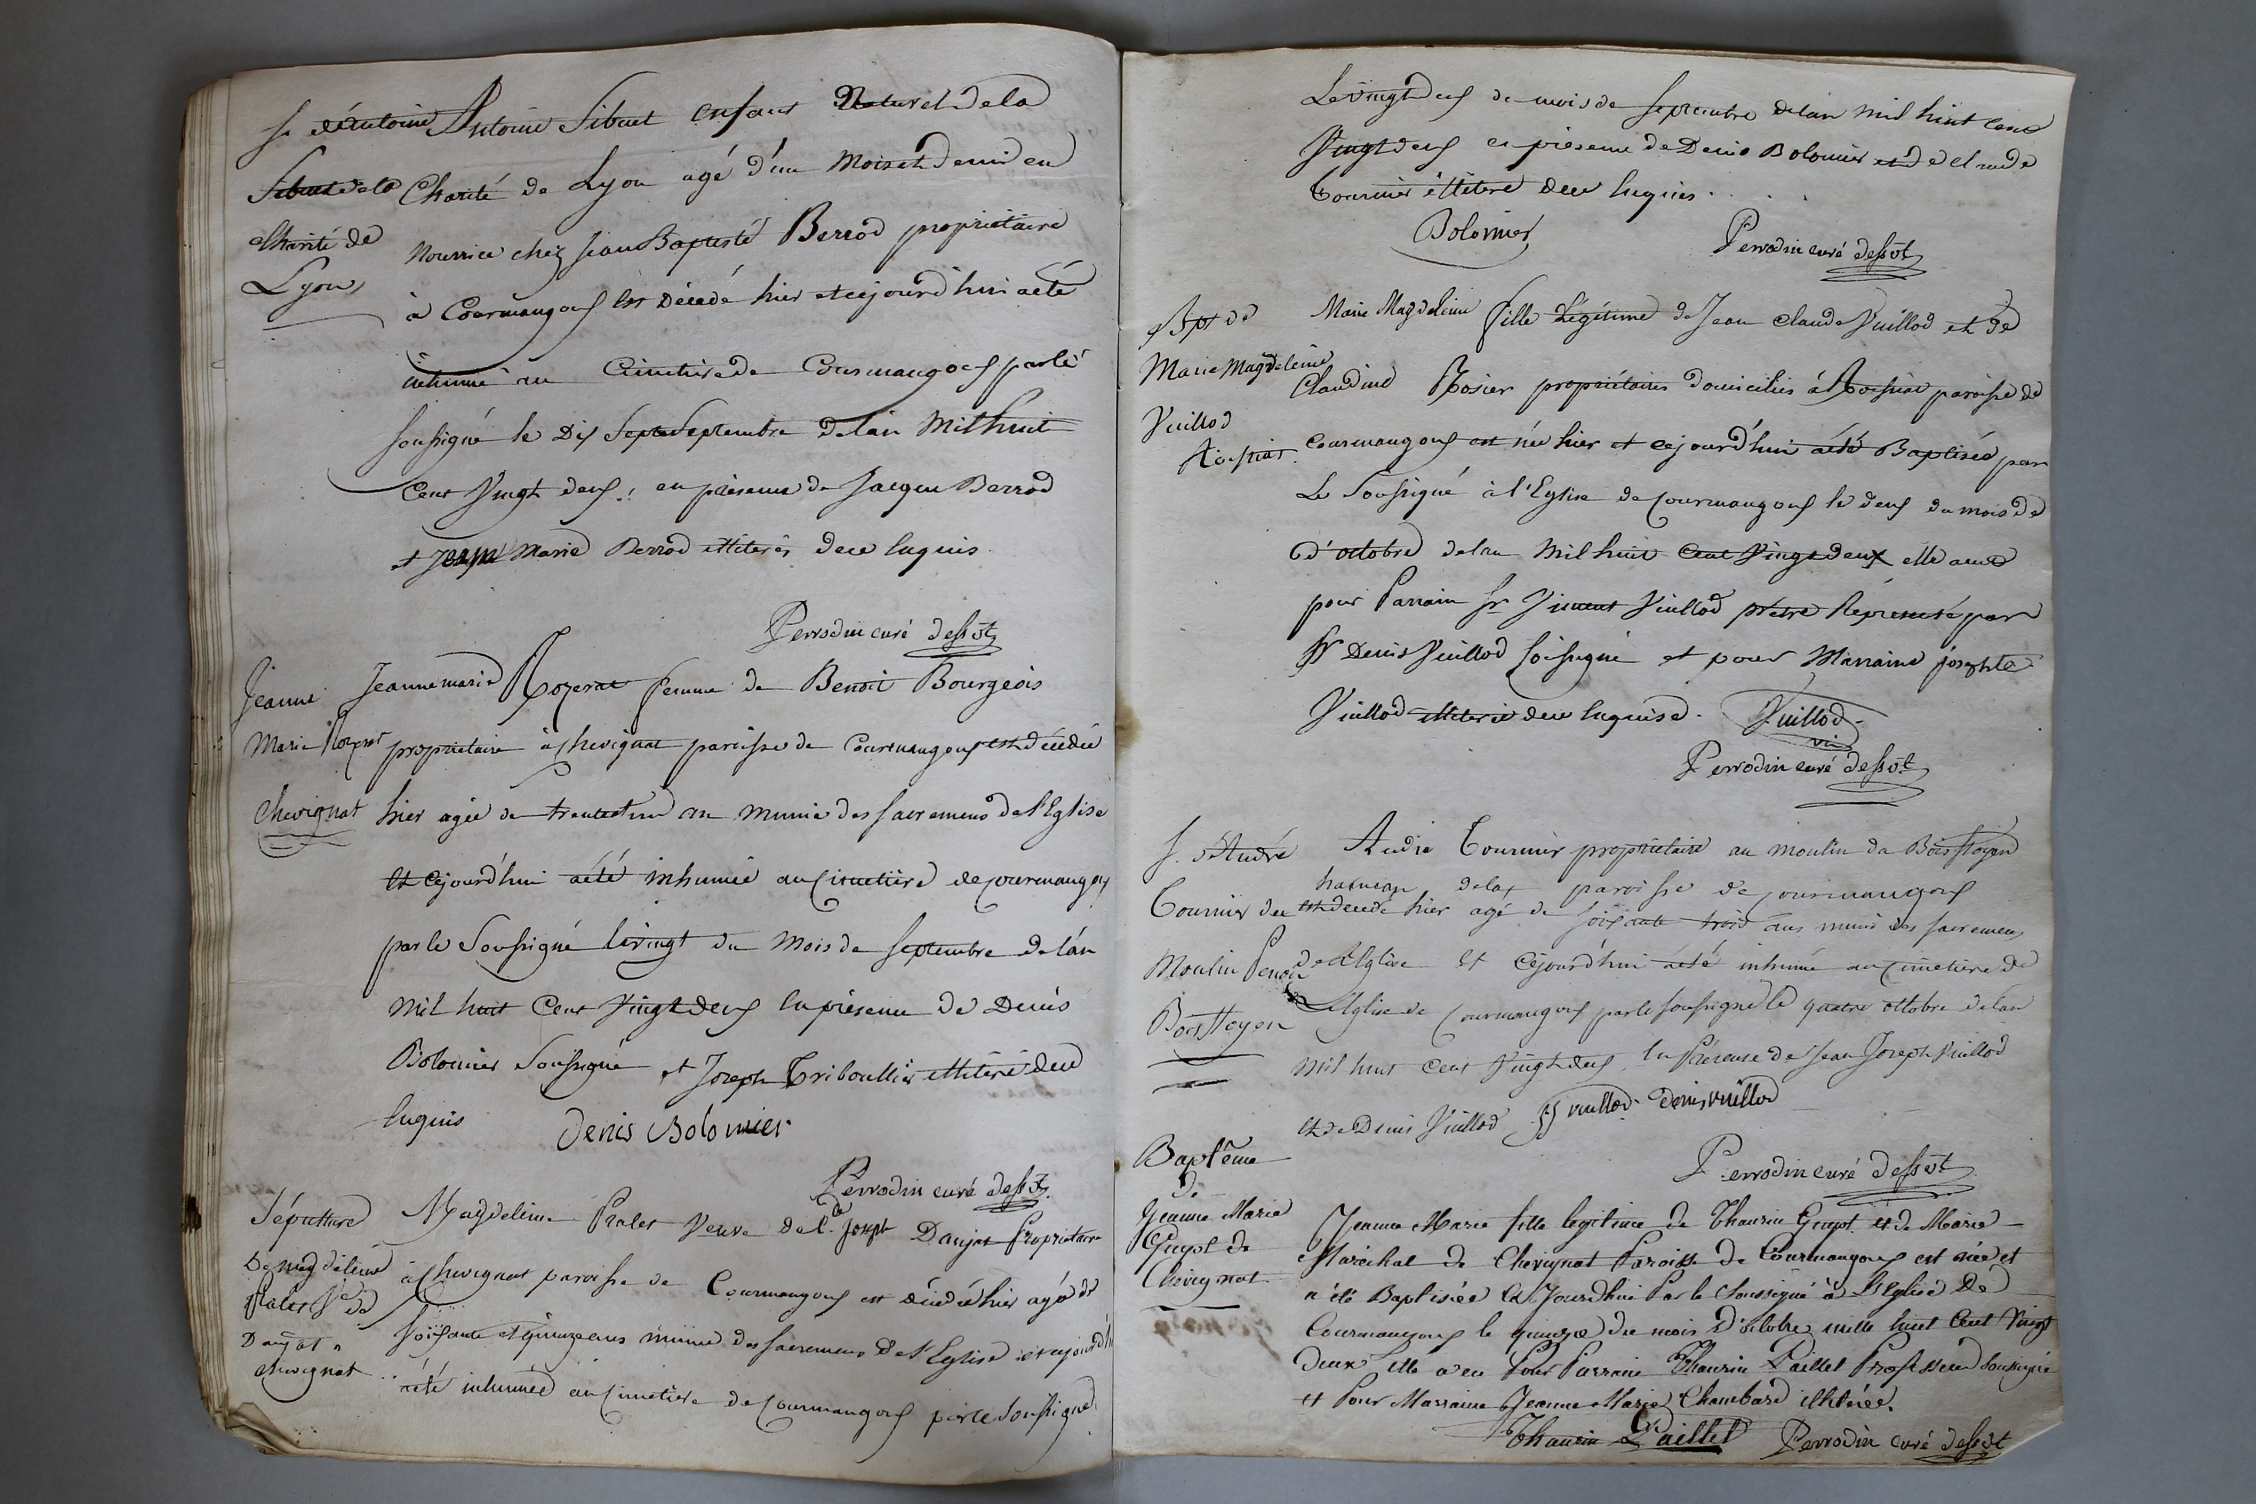 S. d'Antoine
Sibuet de la
Charité de
Lyon
Antoine Sibuet enfant Naturel de la
Charité de Lyon agé d'un mois et demi en
Nourrice chez Jean Baptiste Berrod propriétaire
à Courmangoux est Décédé hier et cejourd'hui a été
inhumé au Cimetiere de Courmangoux par le
soussigné le Dix Sept Septembre de l'an Mil huit
Cent Vingt deux : en présence de Jacque Berrod
et Jean Marie Berrod illiterés de ce Enquis
Perrodin curé dessvt
Jeanne
Marie Rozerat
Chevignat
Jeanne marie Rozerat femme de Benoit Bourgeois
propriétaire à Chevignat paroisse de Courmangoux est décédée
hier agée de trente et un an munie des Sacremens de l'Eglise
et cejourd'hui a été inhumée au Cimetière de Courmangoux
par le Soussigné le vingt du Mois de Septembre de l'an
Mil huit Cent Vingt deux En présence de Denis
Bolomier Soussigné et Joseph Triboullier illiteré de ce
Enquis
Denis Bolomier
Perrodin curé dessvt.
Sépulture
De Magdeleine
Pralet Ve de
Danjat
Chevignat
Magdeleine Pralet Veuve de Joseph Danjat Propriétaire
à Chevignat paroisse de Courmangoux est décédée hier agée de
soixante et quinze ans munie des Sacremens de l'Eglise et cejourd'h
a été inhumée au Cimetière de Courmangoux par le Soussigné
Le vingt deux de mois de Septembre de l'an Mil huit cent
Vingt deux en présence de Denis Bolomier et de Claude
Tournier illiteré de ce Enquis.
Bolomier
Perrodin curé dessvt
Bpt de
Marie Magdeleine
Vuillod
Roissiat
Marie Magdeleine fille Légitime de Jean Claude Vuillod et de
Claudine Rosier propriétaires domiciliés à Roissiat paroisse de
Courmangoux est née hier et cejourd'hui a été Baptisée par
Le Soussigné à l'Eglise de Courmangoux le deux du mois de
d'octobre de l'an Mil huit Cent Vingt deux elle a eu
pour Parrain Sr Vincent Vuillod prêtre Représenté par
Sr Denis Vuillod soussigné et pour Marraine Josephte
Vuillod illiterée de ce Enquise.
Vuillod
Perrodin curé dessvt
S. d'André
Tournier du
Moulin
Bois Moyen
André Tournier propriétaire au moulin du
hameau de la paroisse de Courmangoux
est décédé hier agé de soixante trois ans muni des sacremens
de l'Eglise et cejourd'hui a été inhumé au Cimetière de
l'Eglise de Courmangoux par le soussigné le quatre octobre de l'an
Mil huit Cent Vingt deux En Présence de Jean Joseph Vuillod
et de Denis Vuillod
JJ vuillod Denis vuillod
Perrodin curé dessvt
Baptême
de
Jeanne Marie
Guyot de
Chevignat
Jeanne Marie fille legitime de Thaurin Guyot et de Marie
Maréchal de Chevignat Paroisse de Courmangoux est née et
a été Baptisée Ce Jourdhui Par le Soussigné à L'Eglise De
Courmangoux le quinze du mois D'octobre mille huit Cent Vingt
Deux Elle a eu Pour Parrain Thaurin Paillet Professeur soussigné
et Pour Marraine Jeanne Marie Chambard illiterée.
Thaurin Paillet
Perrodin curé dessvt